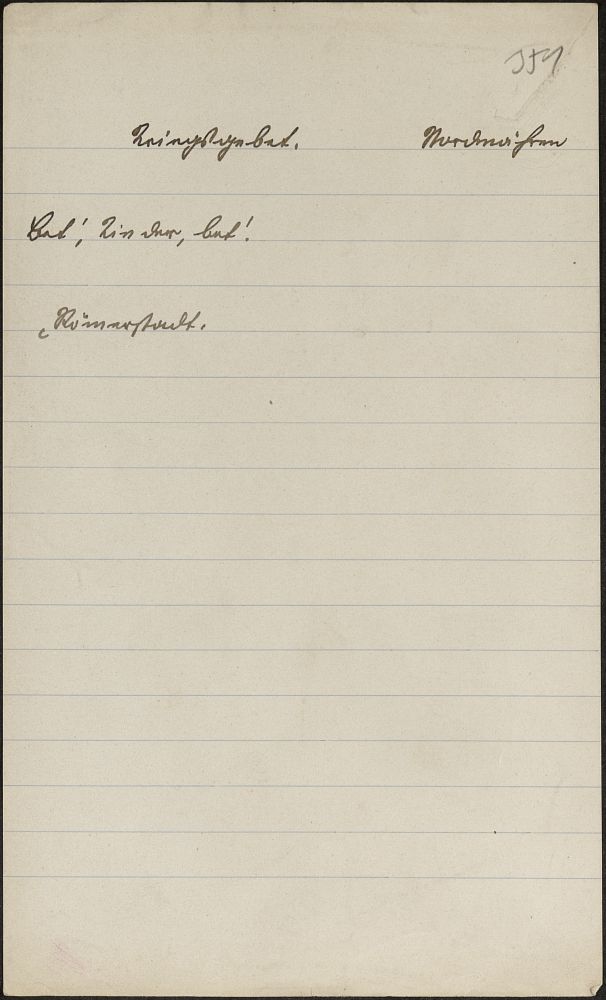 351
Kriegsgebet. Nordmähren
Bet', Kinder, bet'!
Römerstadt.